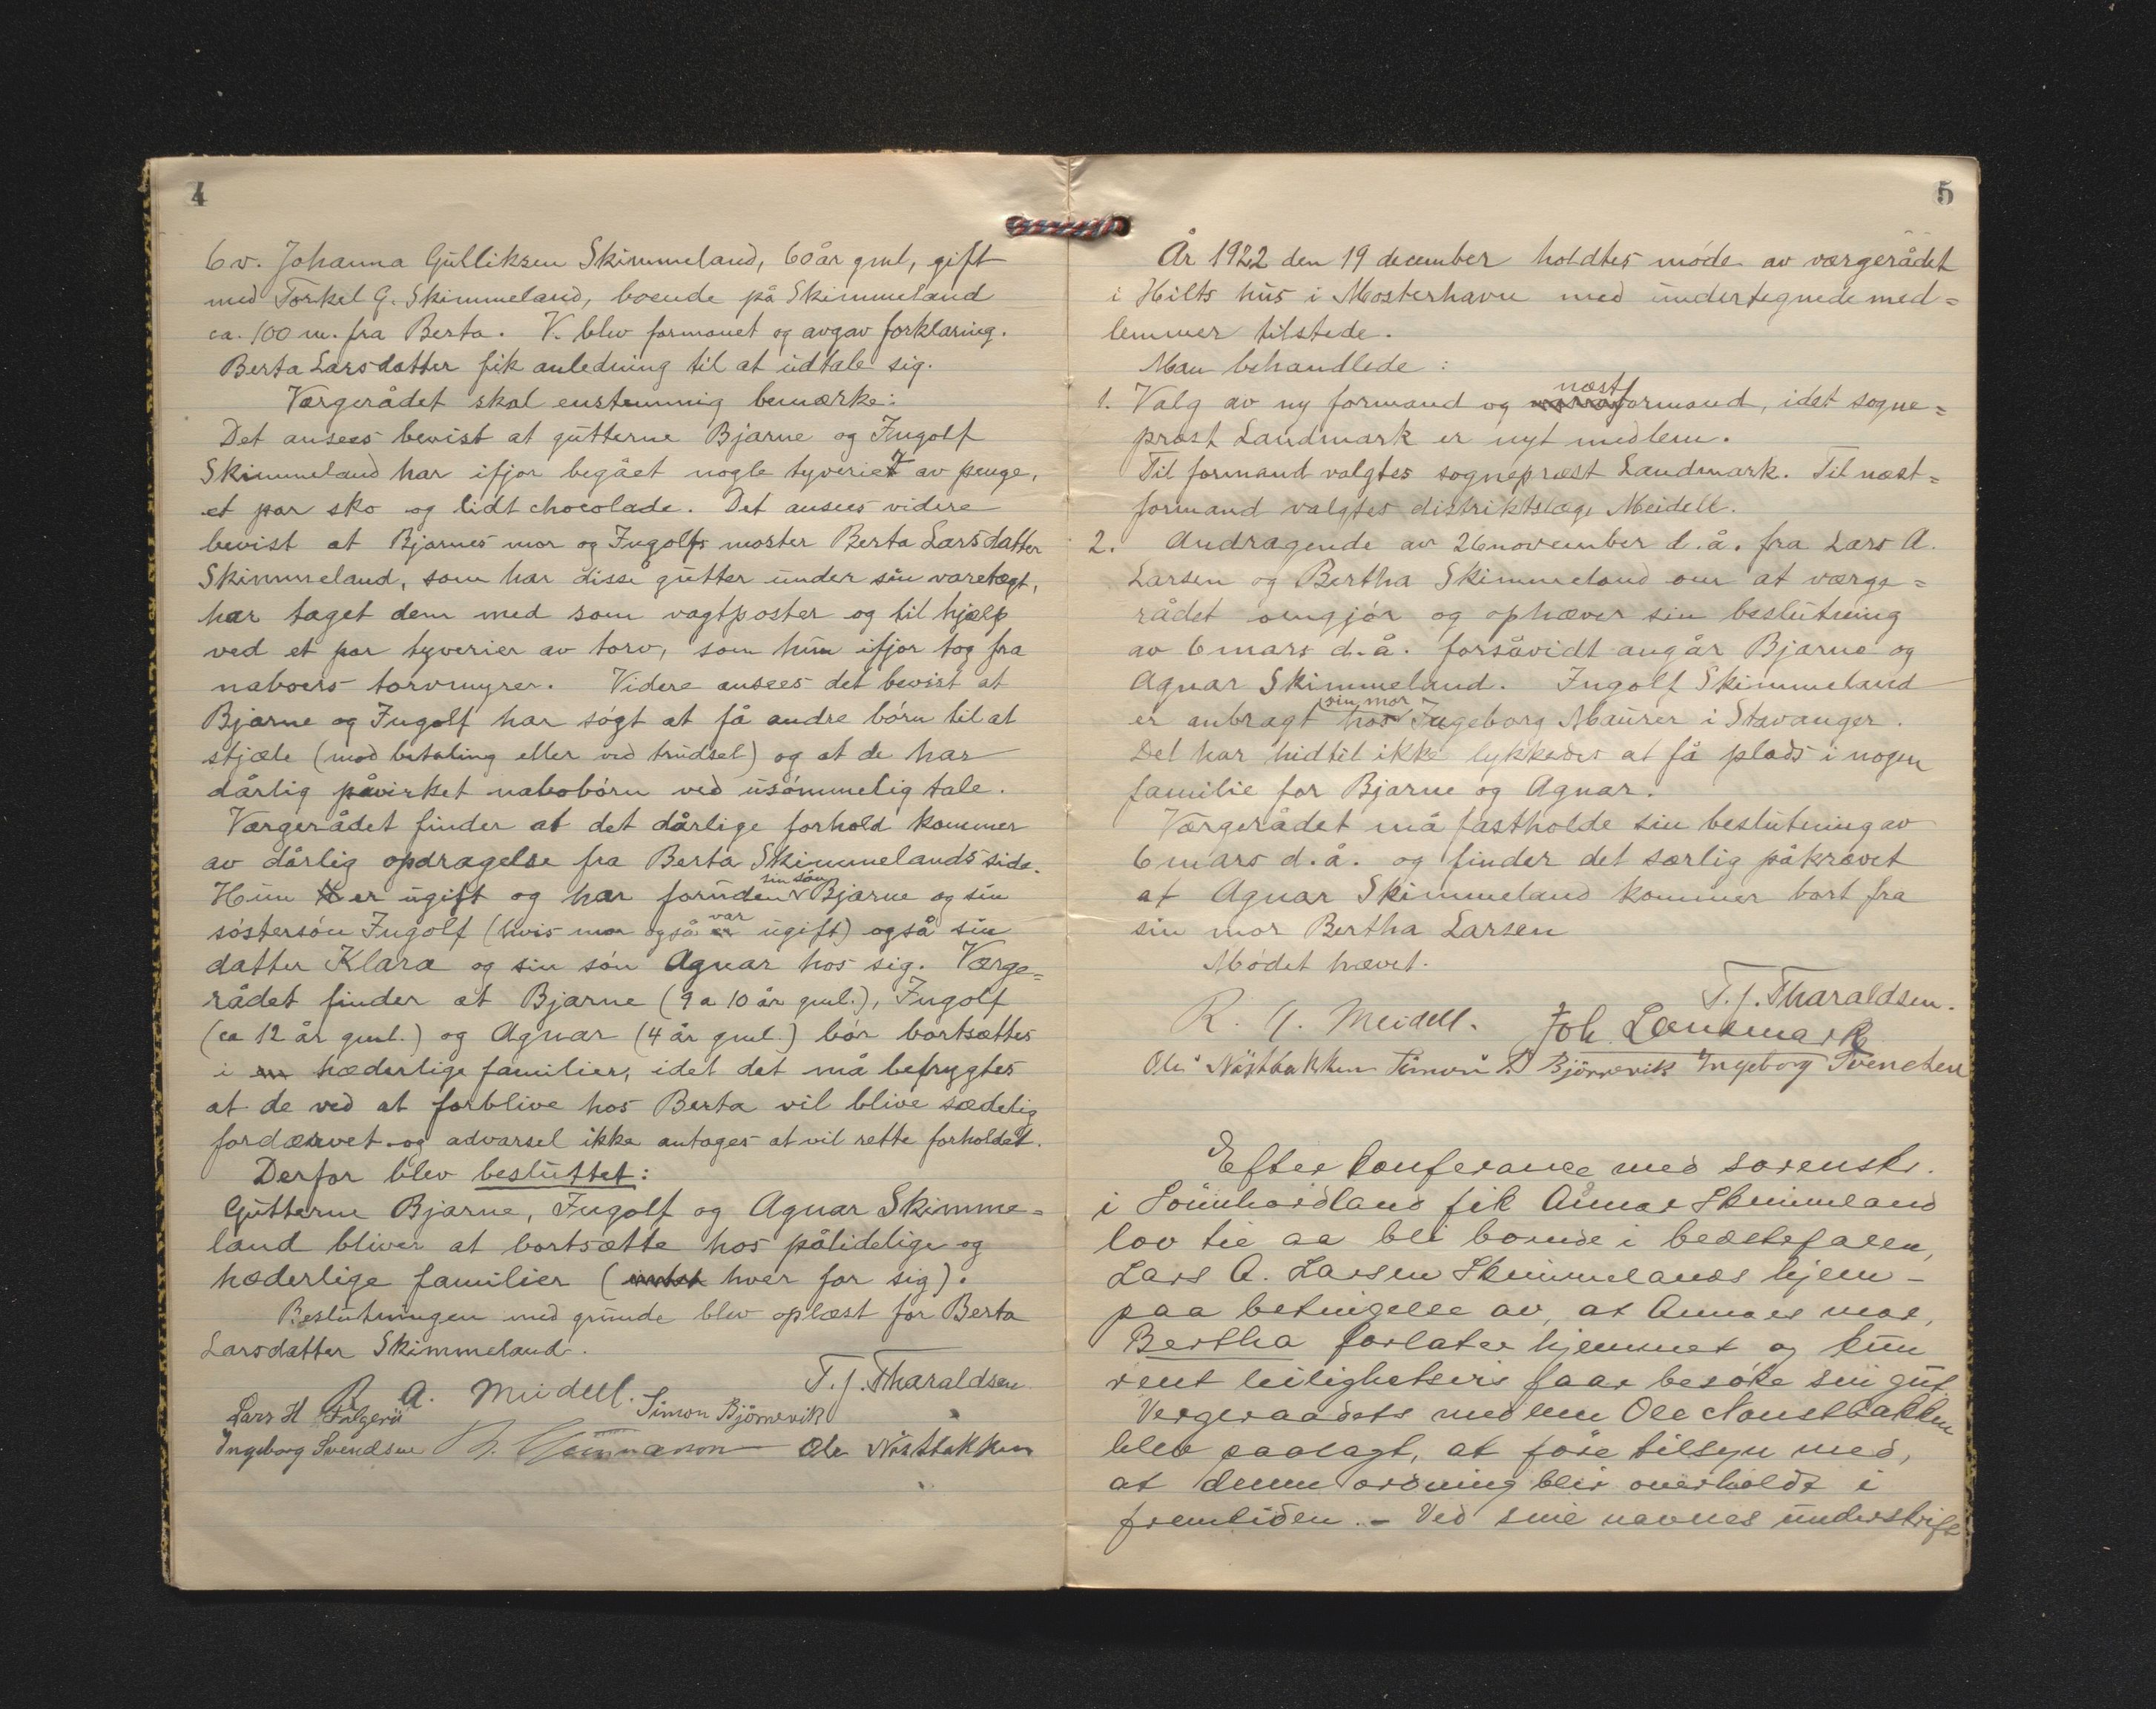 4
6 v. Johanna Gulliksen Skimmeland, 60 år gml, gift
med Torkel G. Skimmeland, boende på Skimmeland
ca. 100 m. fra Berta. V. blev formanet og avgav forklaring.
Berta Larsdatter fik anledning til at udtale sig.
Værgerådet skal enstemmig bemærke:
Det ansees bevist at gutterne Bjarne og Ingolf
Skimmeland har ifjor begået nogle tyverier av penge,
et par sko og lidt chocolade. Det ansees videre
bevist at Bjarnes mor og Ingolfs moster Berta Larsdatter
Skimmeland, som har disse gutter under sin varetægt,
har taget dem med som vagtposter og til hjælp
ved et par tyverier av torv, som hun ifjor tog fra
naboers torvmyrer. Videre ansees det bevist at
Bjarne og Ingolf har søgt at få andre børn til at
stjæle (mod betaling eller ved trudsel) og at de har
dårlig påvirket nabobørn ved usømmelig tale.
Værgerådet finder at det dårlige forhold kommer
av dårlig opdragelse fra Berta Skimmelands side.
Hun er ugift og har foruden sin søn Bjarne og sin
søstersøn Ingolf (hvis mor også var ugift) også sin
datter Klara og sin søn Agnar hos sig. Værge=
rådet finder at Bjarne (9 a 10 år gml.), Ingolf
(ca 12 år gml.) og Agnar (4 år gml.) bør bortsættes
i hæderlige familier, idet det må befrygtes
at de ved at forblive hos Berta vil blive sædelig
fordærvet og advarsel ikke antages at vil rette forholdet.
Derfor blev besluttet:
Gutterne Bjarne, Ingolf og Agnar Skimme=
land bliver at bortsætte hos pålidelige og
hæderlige familier (hver for sig).
Beslutningen med grunde blev oplæst for Berta
Larsdatter Skimmeland.
R A. Meidell. T. J. Tharaldsen
Lars H Simon Bjørnevik
Ingeborg Svendsen Ole Nøstbakken
5
År 1922 den 19 december holdtes møde av værgerådet
i Hilts hus i Mosterhavn med undertegnede med=
lemmer tilstede.
Man behandlede:
1. Valg av ny formand og næstformand, idet sogne=
præst Landmark er nyt medlem.
Til formand valgtes sognepræst Landmark. Til næst=
formand valgtes distriktslæge Meidell.
2. Andragende av 26 november d.å. fra Lars A.
Larsen og Bertha Skimmeland om at værge=
rådet omgjør og ophæver sin beslutning
av 6 mars d.å. forsåvidt angår Bjarne og
Agnar Skimmeland. Ingolf Skimmeland
er anbragt hos sin mor Ingeborg Maurer i Stavanger.
Det har hidtil ikke lykkedes at få plads i nogen
familie for Bjarne og Agnar.
Værgerådet må fastholde sin beslutning av
6 mars d.å. og finder det særlig påkrævet
at Agnar Skimmeland kommer bort fra
sin mor Bertha Larsen
Mødet hævet.
T. J. Tharaldsen.
R. A. Meidell. Joh Landmark
Ole Nøstbakken Simon S. Bjørnevik Ingeborg Svendsen
Efter konferance med sorenskr.
i Sunnhordland fik Annar Skimmeland
lov til aa bli boende i bedstefaren,
Lars A. Larsen Skimmelands hjem –
paa betingelse av, at Annars mor,
Bertha forlater hjemmet og kun
rent leilighetsvis faar besøke sin gut.
Vergeraadets medlem Ole Naustbakken
blev paalagt, at føre tilsyn med,
at denne ordning blir overholdt i
fremtiden. – Ved sine navnes underskrift